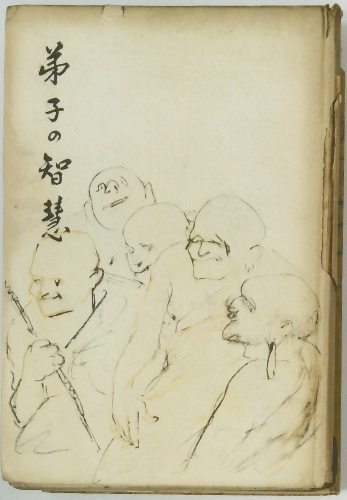 弟子の智慧